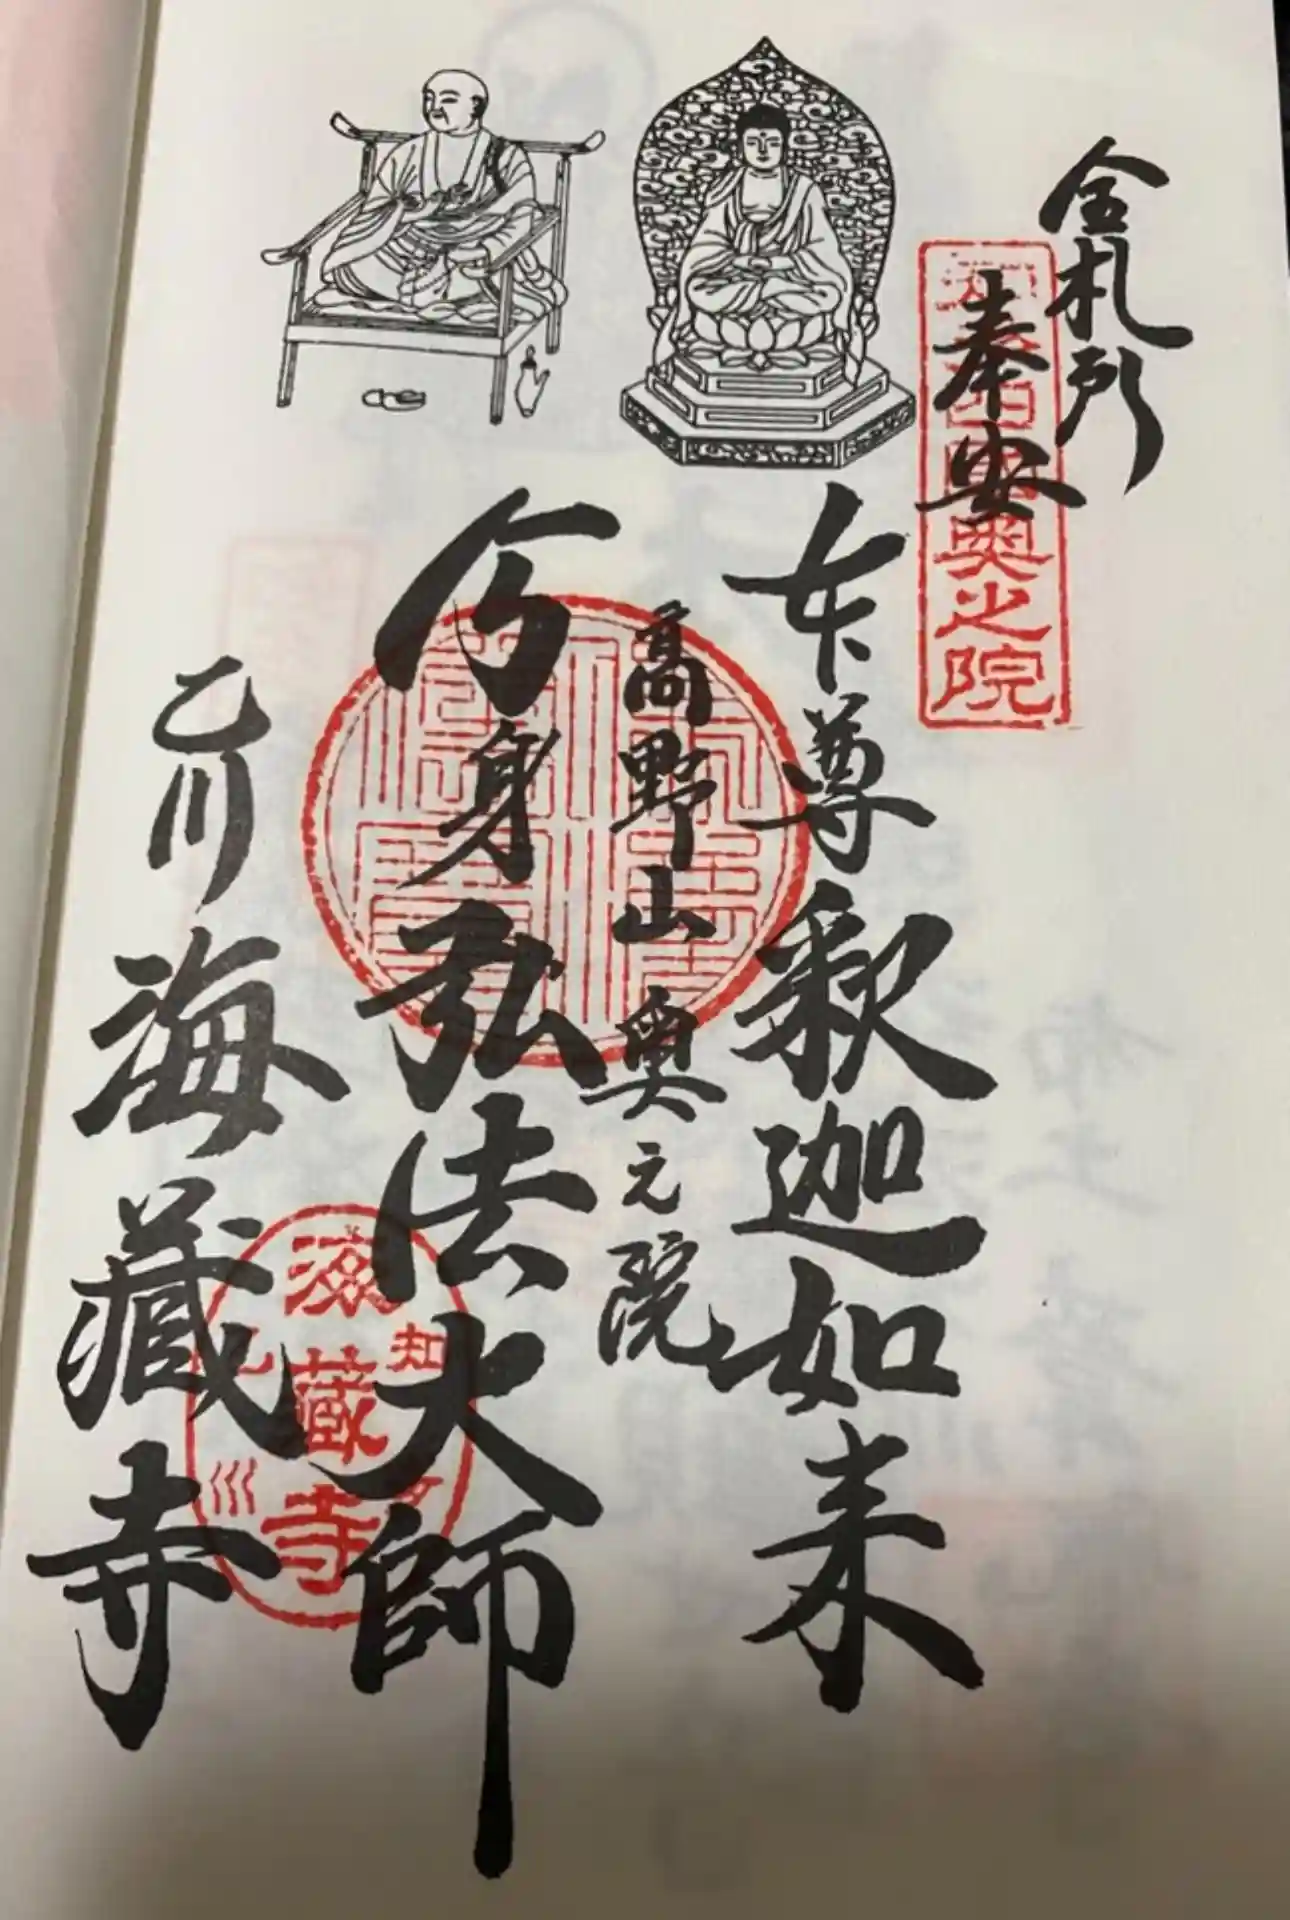 全札所
奉安
奥之院
本尊釈迦如来
高野山奥之院
分身弘法大師
乙川 海蔵寺
海蔵寺
知
乙川